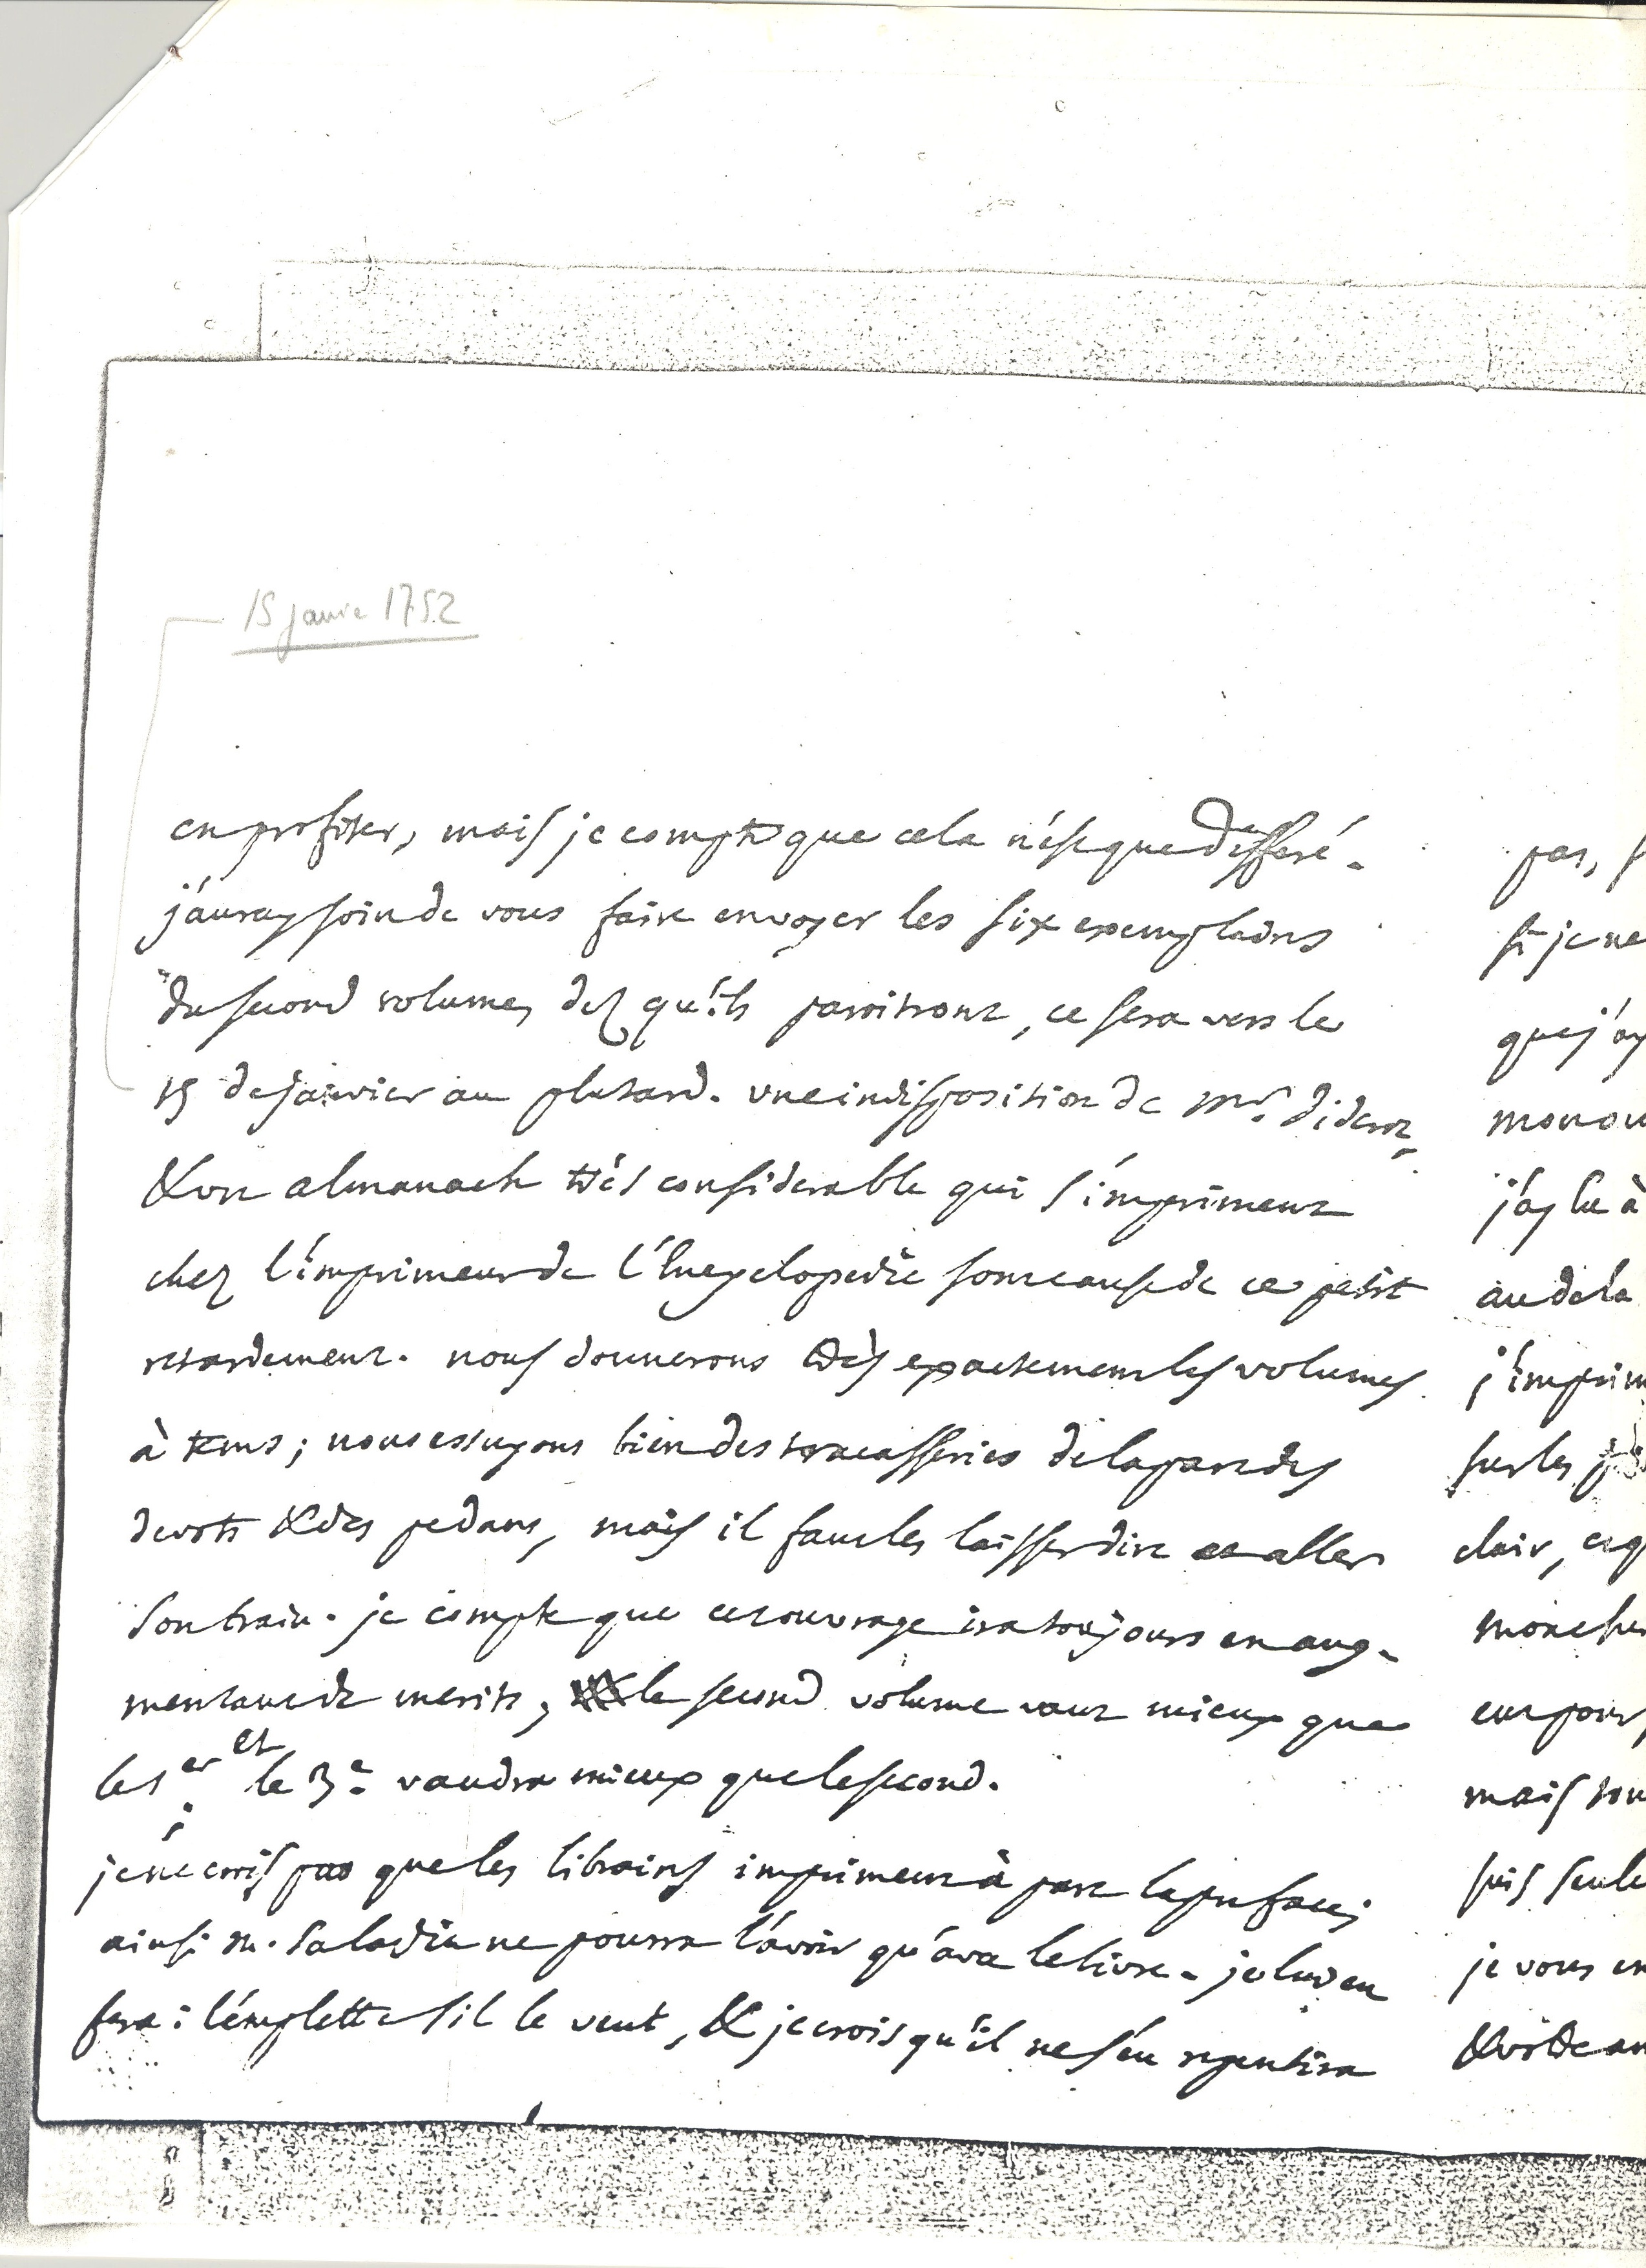 15 janvie 1752
en profiter, mais je compte que cela n'est que differé.
j'auray soin de vous faire envoyer les six exemplaires
du second volume, dez qu'ils paroitront, ce sera vers le
15 de Janvier au plutard. une indisposition de Mr. diderot
& un almanach très considerable qui s'impriment
chez l'imprimeur de l'Encyclopedie sont cause de ce petit
retardement. nous donnerons très exactement les volumes
à tems; nous essuyons bien des tracasseries de la part des
devots & des pedans, mais il faut les laisser dire et aller
son train. je compte que cet ouvrage ira toujours en aug-
mentant de merite, le second volume vaut mieux que
le 1er et le 3e vaudra mieux que le second.
je ne crois pas que les libraires impriment à part la preface;
ainsi m. Saladin ne pourra l'avoir qu'avec le livre. je luy en
ferai l'emplette s'il le veut, & je crois qu'il ne s'en repentira
pas, s
si je ne
que j'ay
mon ou
j'ay lu à
au dela
j'imprim
sur les
clair, ce q
mais
suis seule
je vous en